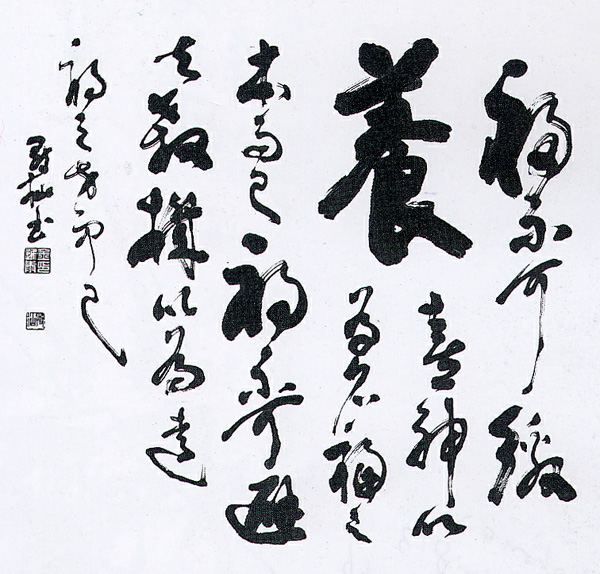 福不可徼
養喜神以
為召福之
本而已禍不可避
去殺機以為遠
禍之方而已
書